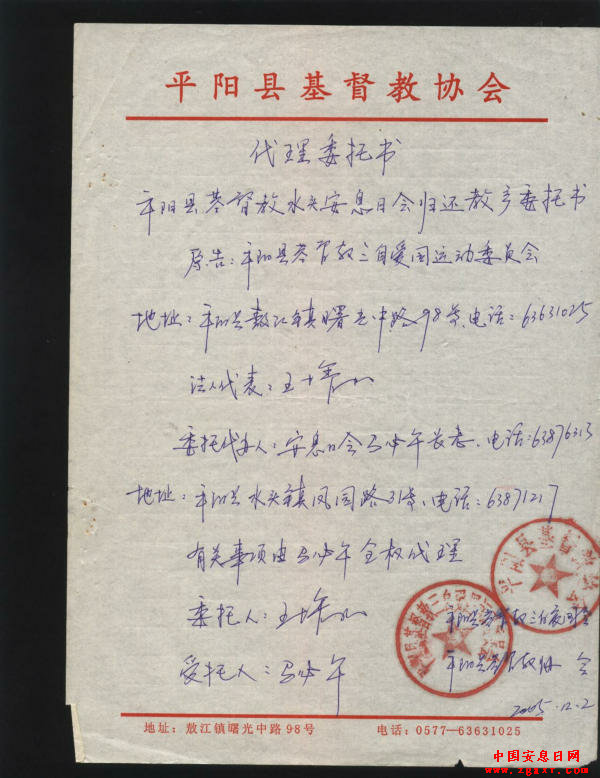 平阳县基督教协会
代理委托书
平阳县基督教水头安息日会归还教产委托书
原告：平阳县基督教三自爱国运动委员会
地址：平阳县敖江镇曙光中路98号、电话：63631025
法人代表：王
委托代办人：安息日会马 午长老、电话：63876313
地址：平阳县水头镇凤园路31号、电话：63871217
有关事项由马 午全权代理
委托人：王
受托人：马 午
平阳县基督教三自爱国会
平阳县基督教协会
2005.12.2
平阳县基督教协会
地址：敖江镇曙光中路98号 电话：0577—63631025
中国安息日网
www.zgaxr.com